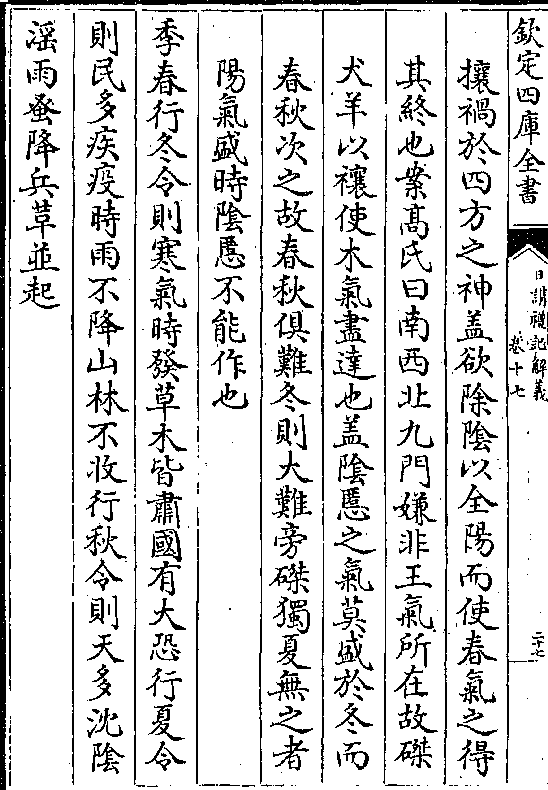 欽定四庫全書
日講禮記解義
卷十七
二十七
攘禍於四方之神蓋欲除陰以全陽而使春氣之得
其終也案高氏曰南西北九門嫌非王氣所在故磔
犬羊以禳使木氣盡達也蓋陰慝之氣莫盛於冬而
春秋次之故春秋俱難冬則大難旁磔獨夏無之者
陽氣盛時陰慝不能作也
季春行冬令則寒氣時發草木皆肅國有大恐行夏令
則民多疾疫時雨不降山林不收行秋令則天多沈陰
淫雨蚤降兵革並起